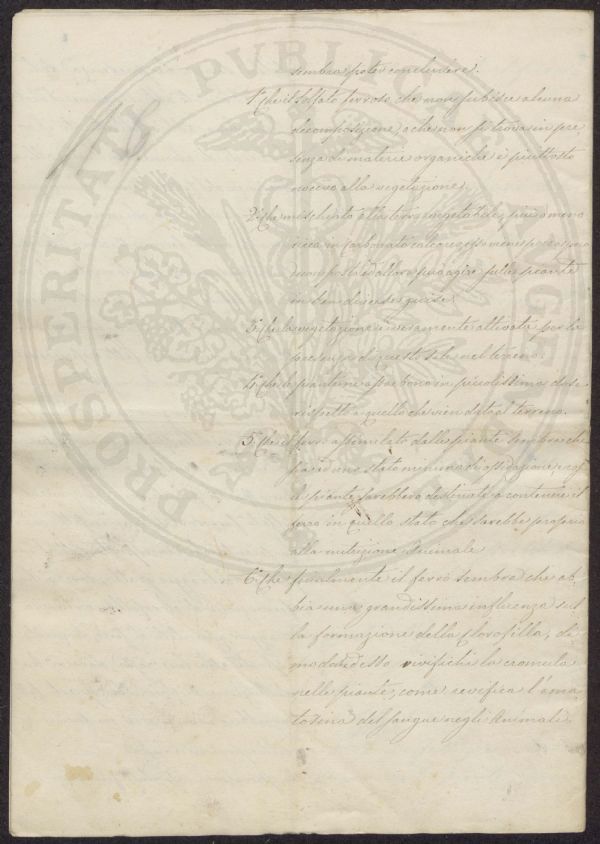 sembra poter concludere.
1º Che il Solfato ferroso che non subisce alcuna
decomposizione, o che non si trova in pre
senza di materie organiche è piuttosto
nocevo alla vegetazione.
2º Che mischiato alla terra vegetabile, più o meno
ricca in Carbonato calcare, esso
decomposto ed allora può agire sulle piante
in ben diverse guise.
3º Che la vegetazione è veramente attivata per la
presenza di questo Sale nel terreno.
4º Che le piante ne assorbono in piccolissima dose
rispetto a quello che vien dato al terreno.
5º Che il ferro assimilato dalle piante sembra che
sia ad uno stato minimo di ossidazione,
le piante sarebbero destinate a contenere il
ferro in quello stato che sarebbe proprio
alla nutrizione Animale
6º Che finalmente il ferro sembra che ab
bia una grandissima influenza sul
la formazione della Clorofilla, di
modo ch'esso vivifichi la cromula
nelle piante, come revifica l'ema
tosina del sangue negli Animali.
PROSPERITATI PVBLICAE AVGENDAE